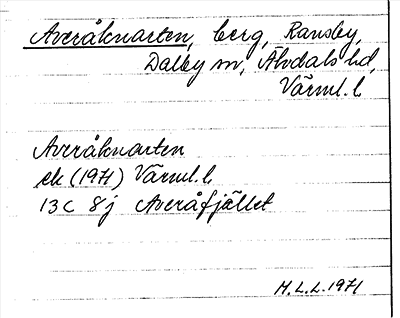 Averåknarten, berg, Ransby,
Dalby sn, Älvdals hd,
Värml. l.
Averåknarten
ek (1971) Värml. l.
13 C 8j Averåfjället
M.L.L. 1971